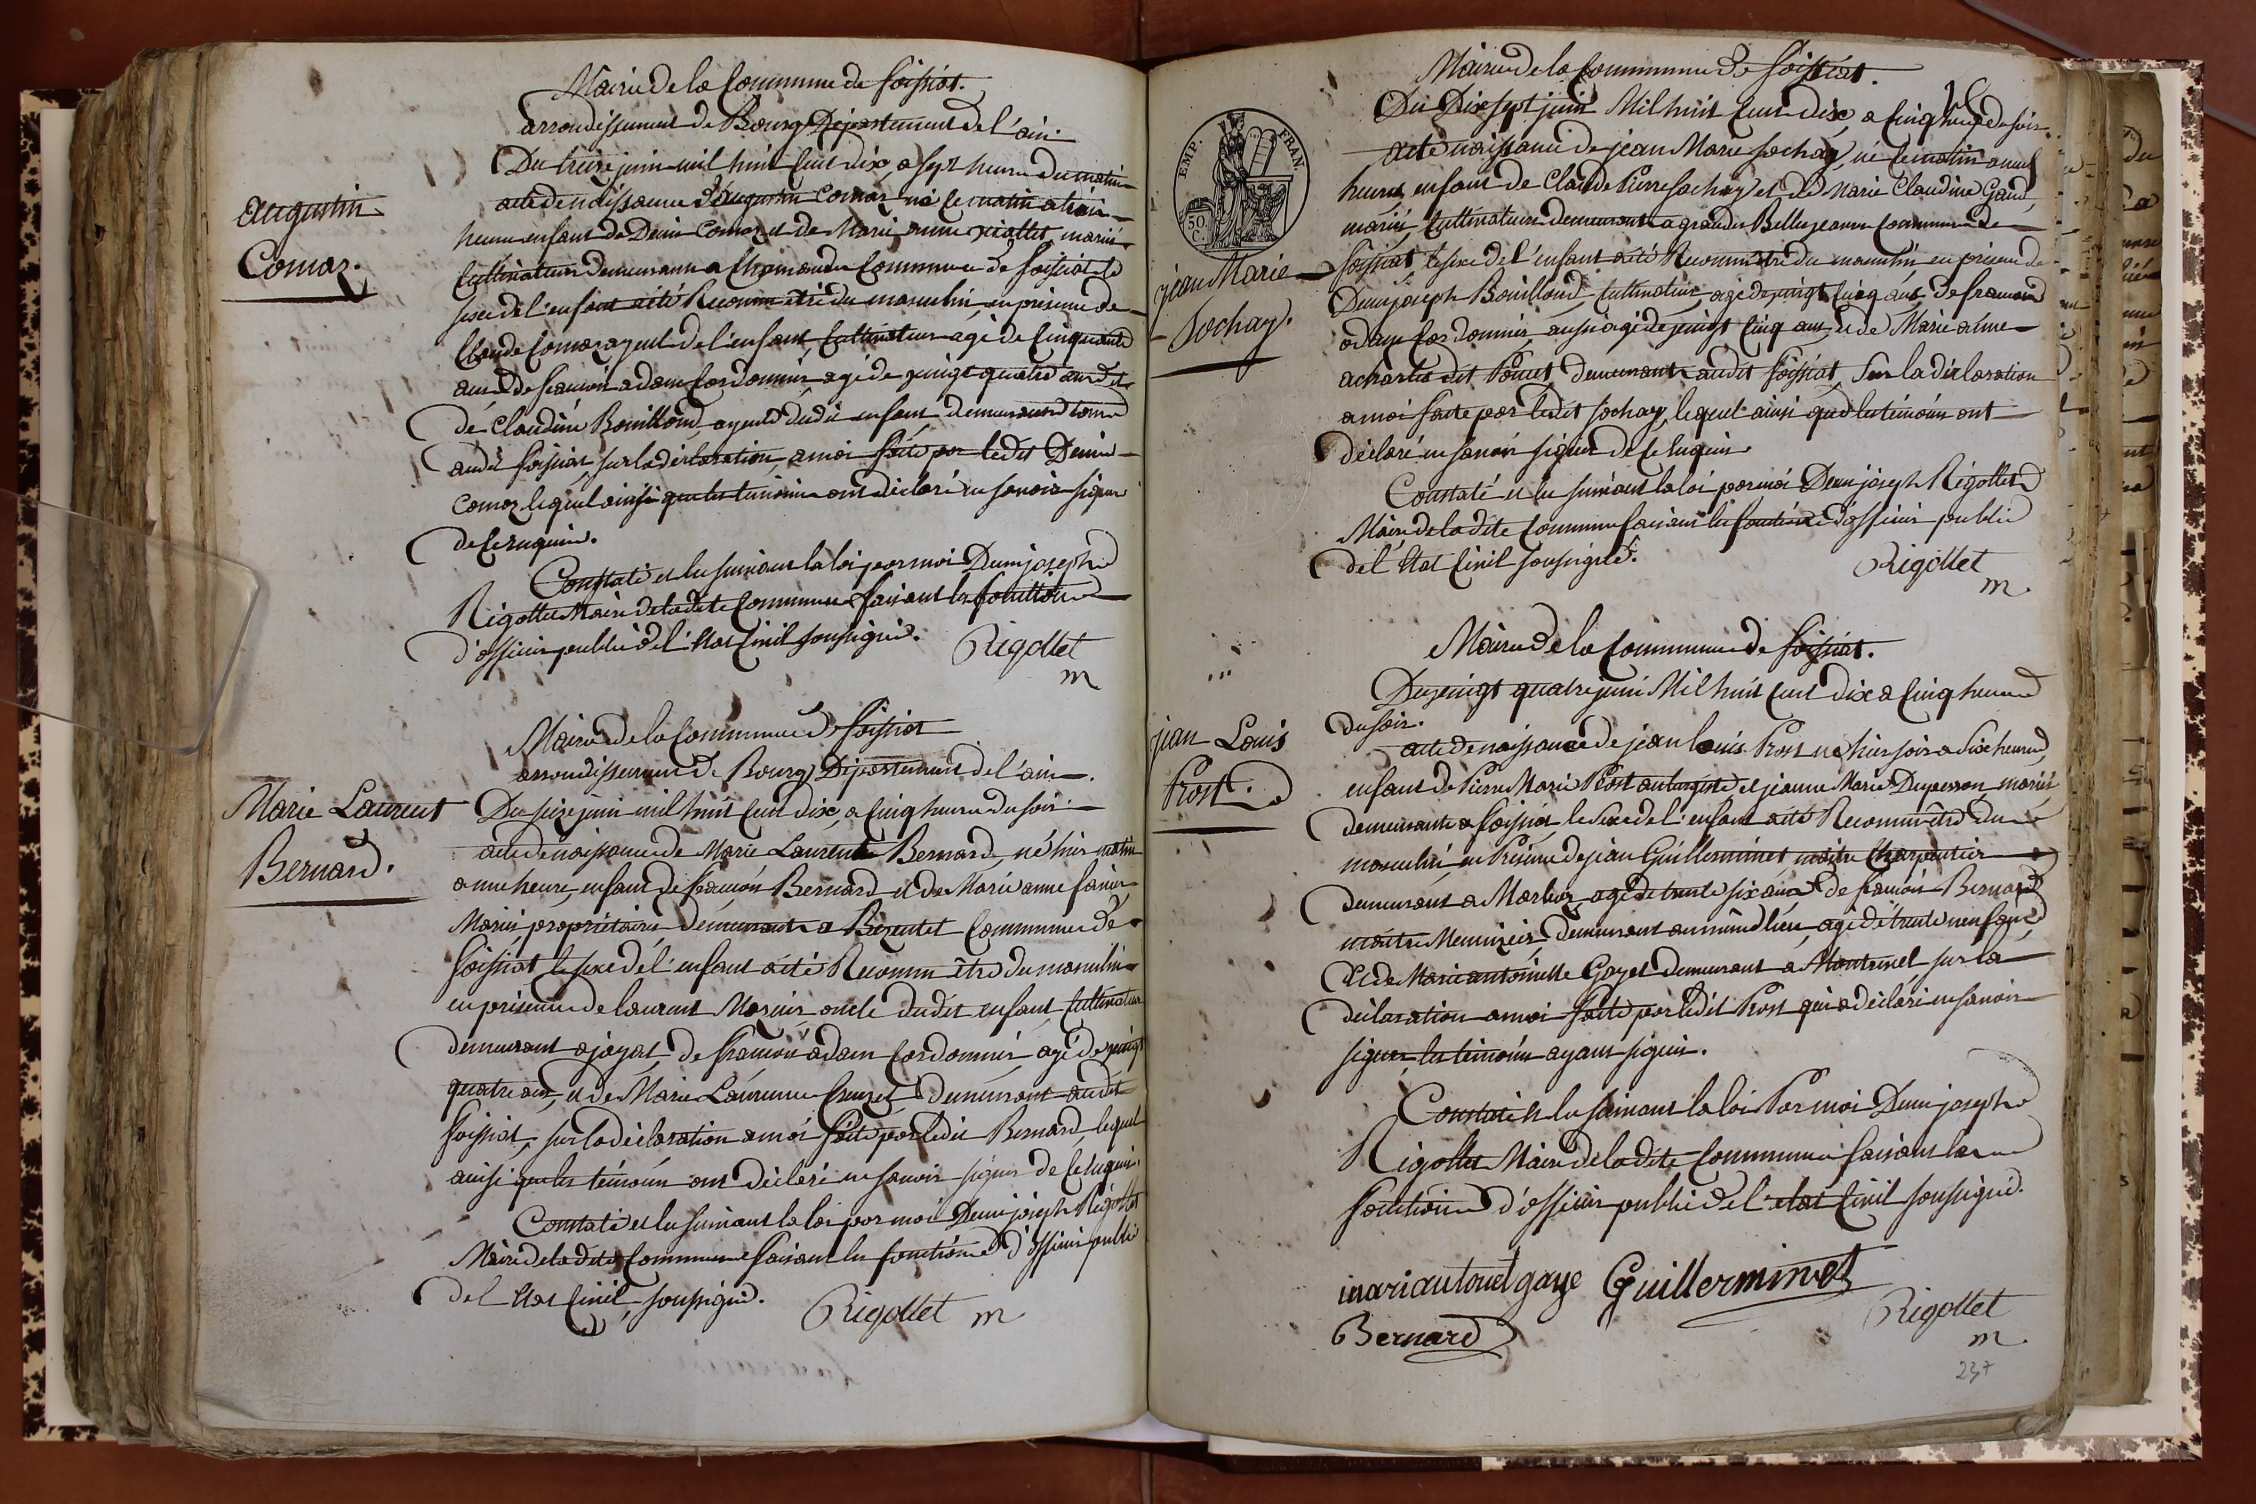 Mairie de la Commune de foissiat.
arrondissement de Bourg Département de l'ain.
Augustin
Comaz.
Du treize juin mil huit cent dix, a sept heure du matin
acte de naissance d'augustin Comaz né ce matin a trois
heure enfant de Denis Comaz et de Marie anne viallet, mariés
Cultivateurs demeurants a Commune de foissiat le
sexe de l'enfant a été Reconnu être du masculin, en présence de
Claude Comaz ayeul de l'enfant Cultivateur agé de Cinquante
ans de francois adam Cordonnier, agé de vingt quatre ans et
de Claudine Bouilloud, ayeule dudit enfant demeurants tous
audit foissiat, sur la déclaration a moi faite par ledit Denis
Comaz lequel ainsi que les témoins ont déclaré ne savoir signer
de ce enquis.
Constaté et lu suivant la loi par moi Denis joseph
Rigollet Maire de la dite Commune faisant les fonctions
d'officier public de l'état Civil soussigné.
Rigollet
m
Mairie de la Commune de foissiat
arrondissement de Bourg Département de l'ain.
Marie Laurent
Bernard.
Du seize juin mil huit cent dix, a Cinq heure du soir.
acte de naissance de Marie Laurent Bernard, né hier matin
a une heure, enfant de francois Bernard et de Marie anne
Mariés propriétaires demeurants a Commune de
foissiat, le sexe de l'enfant a été Reconnu être du masculin
en présence de laurent oncle dudit enfant Cultivateur
demeurant a jayat, de francois adam Cordonnier agé de vingt
quatre ans, et de Marie Laurence demeurant audit
foissiat, sur la déclaration a moi faite par ledit Bernard, lequel
ainsi que les témoins ont déclaré ne savoir signer de ce enquis.
Constaté et lu suivant la loi par moi Denis joseph Rigollet
Maire de la dite Commune faisant les fonctions d'officier public
de l'état Civil, soussigné.
Rigollet m
Mairie de la Commune de foissiat.
EMP. FRAN.
50 C.
Du Dix sept juin Mil huit cent dix, a Cinq heures du soir
acte de naissance de jean Marie sochay, né ce matin a neuf
heures, enfant de Claude Pierre sochay et de Marie Claudine Gaud,
mariés, Cultivateurs demeurants a Commune de
jean Marie
Sochay.
foissiat, le sexe de l'enfant a été Reconnu être du masculin en présence de
Denis joseph Bouilloud, Cultivateur, agé de vingt cinq ans, de francois
adam Cordonnier, aussi agé de vingt Cinq ans, et de Marie aime
dit Poncet demeurants audit foissiat, sur la déclaration
a moi faite par ledit sochay, lequel ainsi que les témoins ont
déclaré ne savoir signer de ce enquis.
Constaté et lu suivant la loi par moi Denis joseph Rigollet
Maire de la dite Commune faisant les fonctions d'officier public
de l'état Civil soussigné.
Rigollet
m
Mairie de la Commune de foissiat.
Du vingt quatre juin Mil huit cent dix a Cinq heures
du soir.
jean Louis
Prost.
acte de naissance de jean louis Prost né hier soir a Six heures,
enfant de Pierre Marie Prost aubergiste et jeanne Marie mariés,
demeurants a foissiat, le sexe de l'enfant a été Reconnu être du
masculin, en Présence de jean Guillerminet, maître Charpentier
demeurant a Marboz, agé de trente six ans, de francois Bernard
maître Menuisier, demeurant au même lieu, agé de trente neuf ans,
et de Marie antoinette Gayet demeurant a sur la
déclaration a moi faite par ledit Prost qui a déclaré ne savoir
signer, les témoins ayant signés.
Constaté et lu suivant la loi Par moi Denis joseph
Rigollet Maire de la dite Commune faisant les
fonctions d'officier public de l'état Civil soussigné.
mariautonet gaye Guillerminet
Rigollet
m
Bernard
237